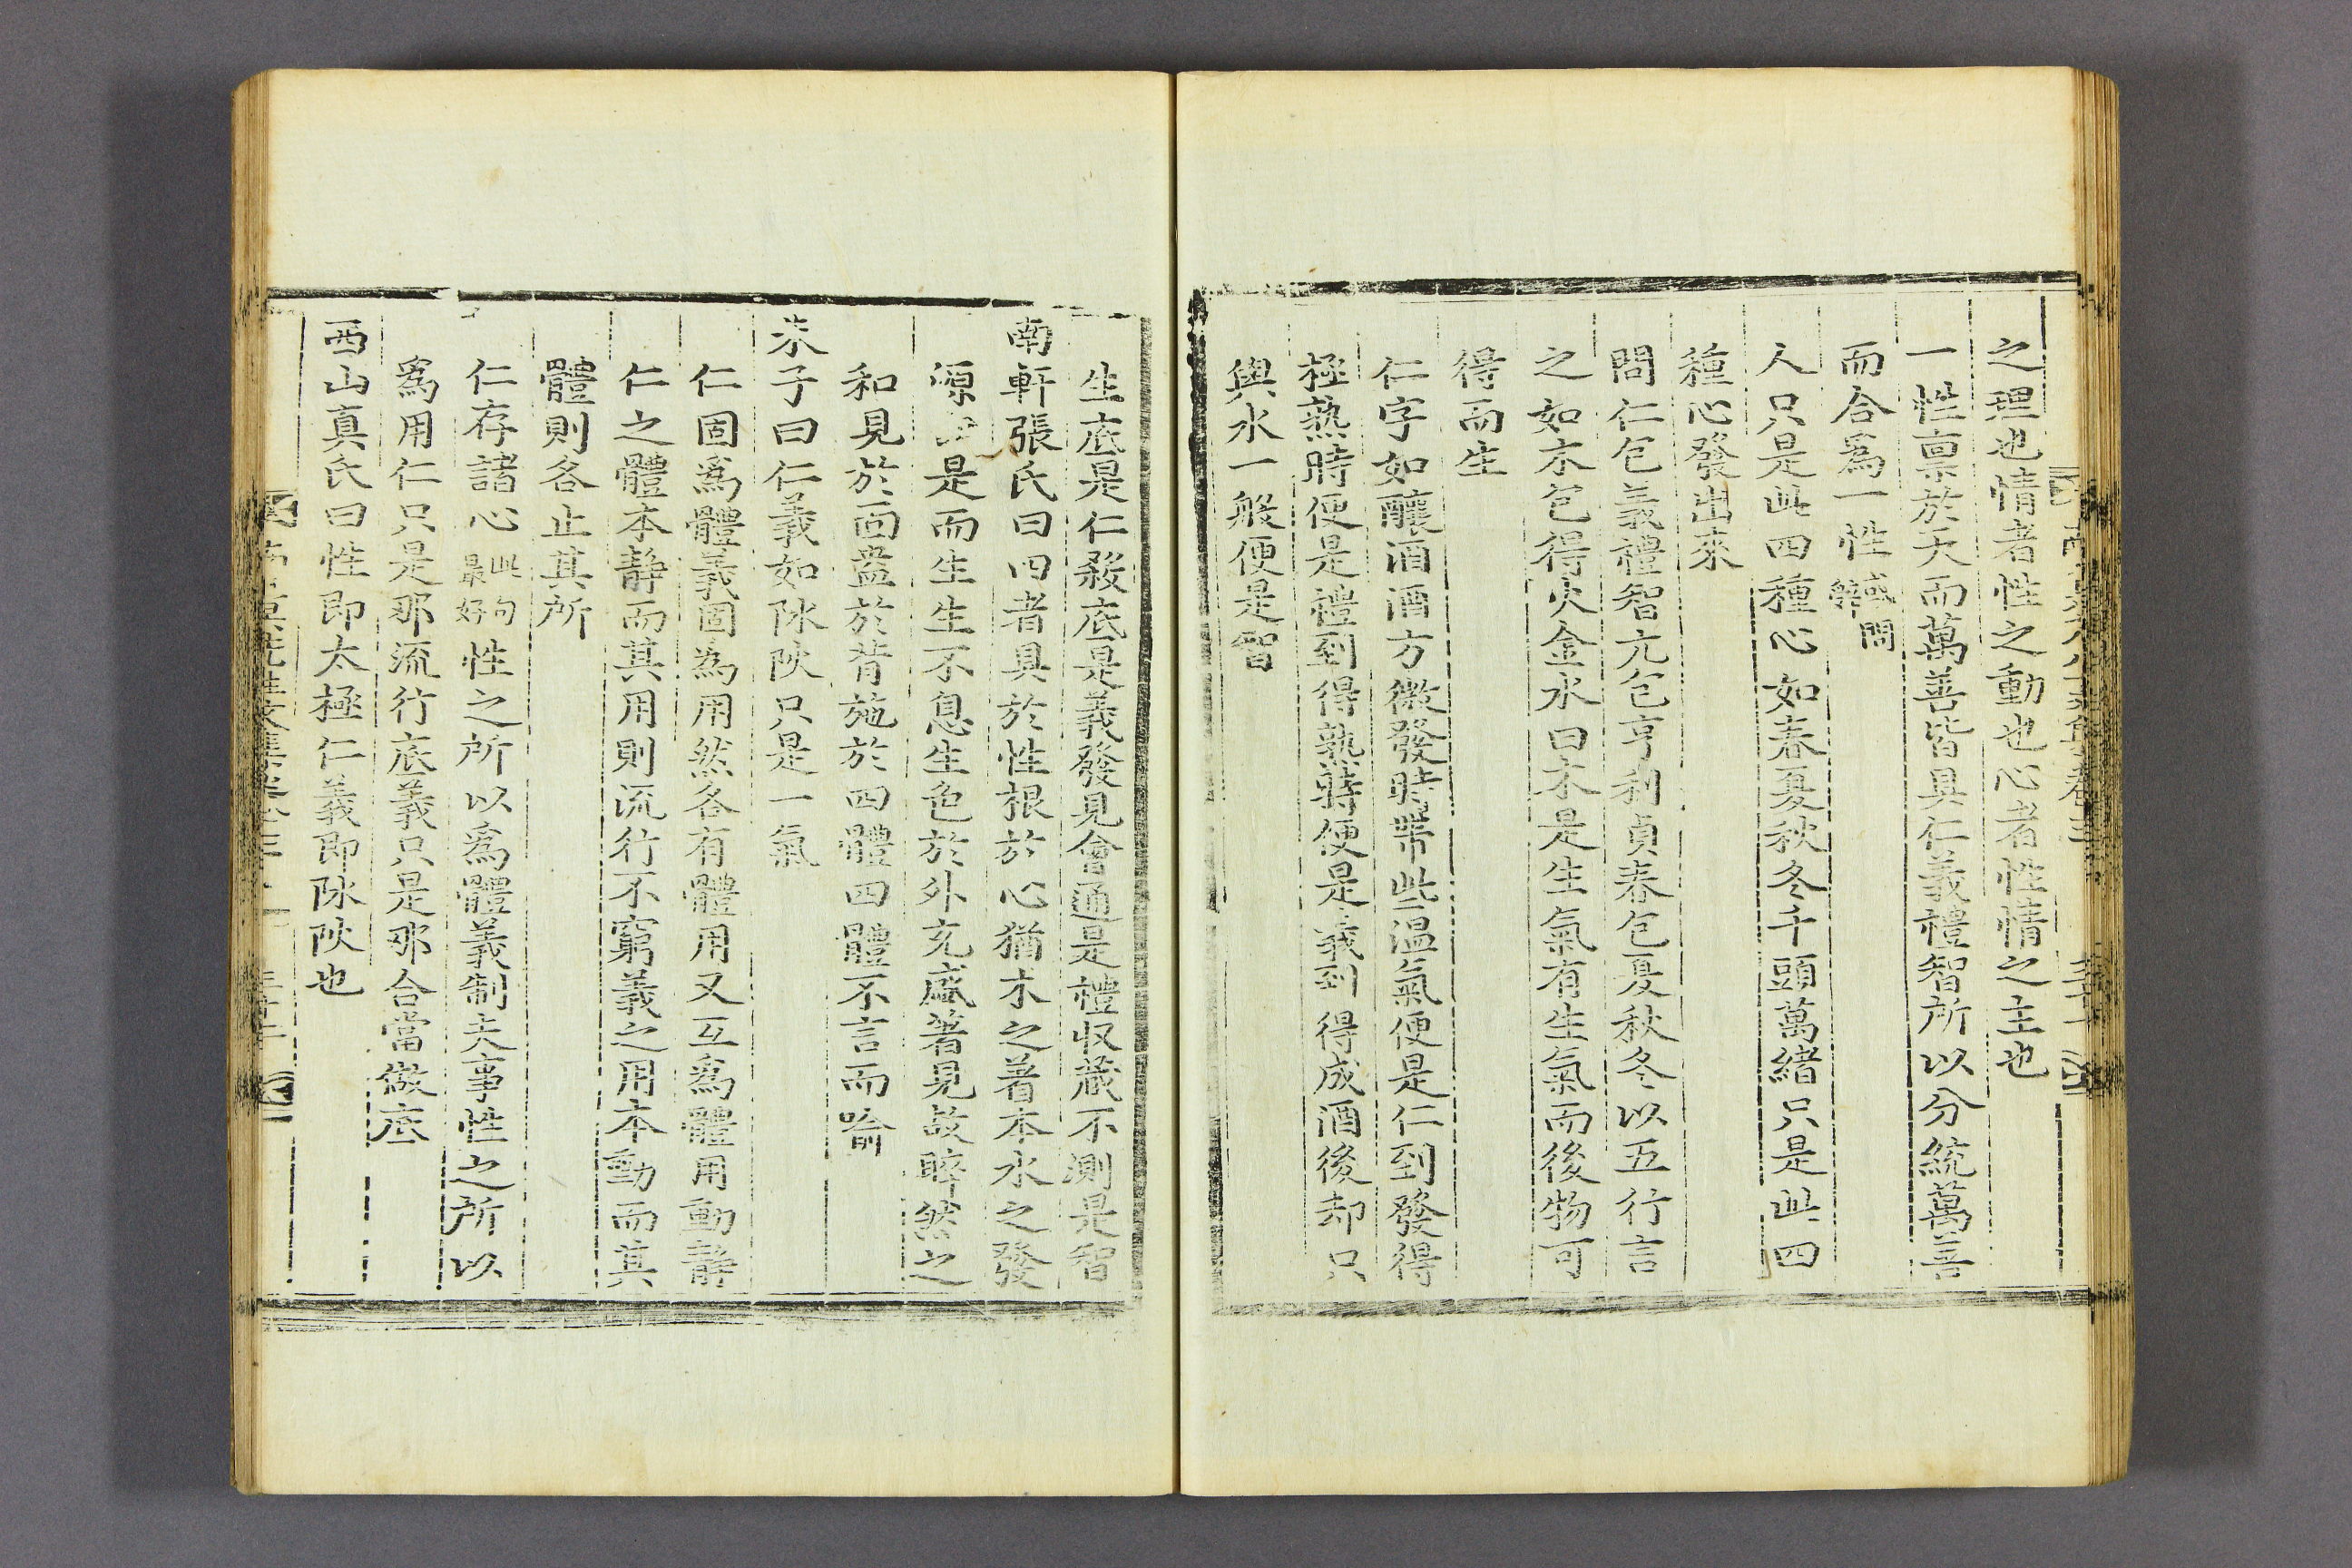 之理也情者性之動也心者性情之主也
一性禀於天而萬善皆具仁義禮智所以分統萬善
而合爲一性
人只是此四種心如春夏秋冬千頭萬緒只是此四
種心發出來
問仁包義禮智元包亨利貞春包夏秋冬以五行言
之如木包得火金水曰木是生氣有生氣而後物可
得而生
仁字如釀酒酒方微發時帶些温氣便是仁到發得
極熱時便是禮到得熟時便是義到得成酒後却只
與水一般便是智
生底是仁殺底是義發見會通是禮収藏不測是智
南軒張氏曰四者具於性根於心猶木之着本水之發
源 是而生生不息生色於外充盛著見故睟然之
和見於面盎於背施於四體四體不言而喻
朱子曰仁義如陰陽只是一氣
仁固爲體義固為用然各有體用又互爲體用動靜
仁之體本靜而其用則流行不窮義之用本動而其
體則各止其所
仁存諸心 此句最好 性之所以爲體義制夫事性之所以
爲用仁只是那流行底義只是那合當做底
西山真氏曰性即太極仁義即陰陽也